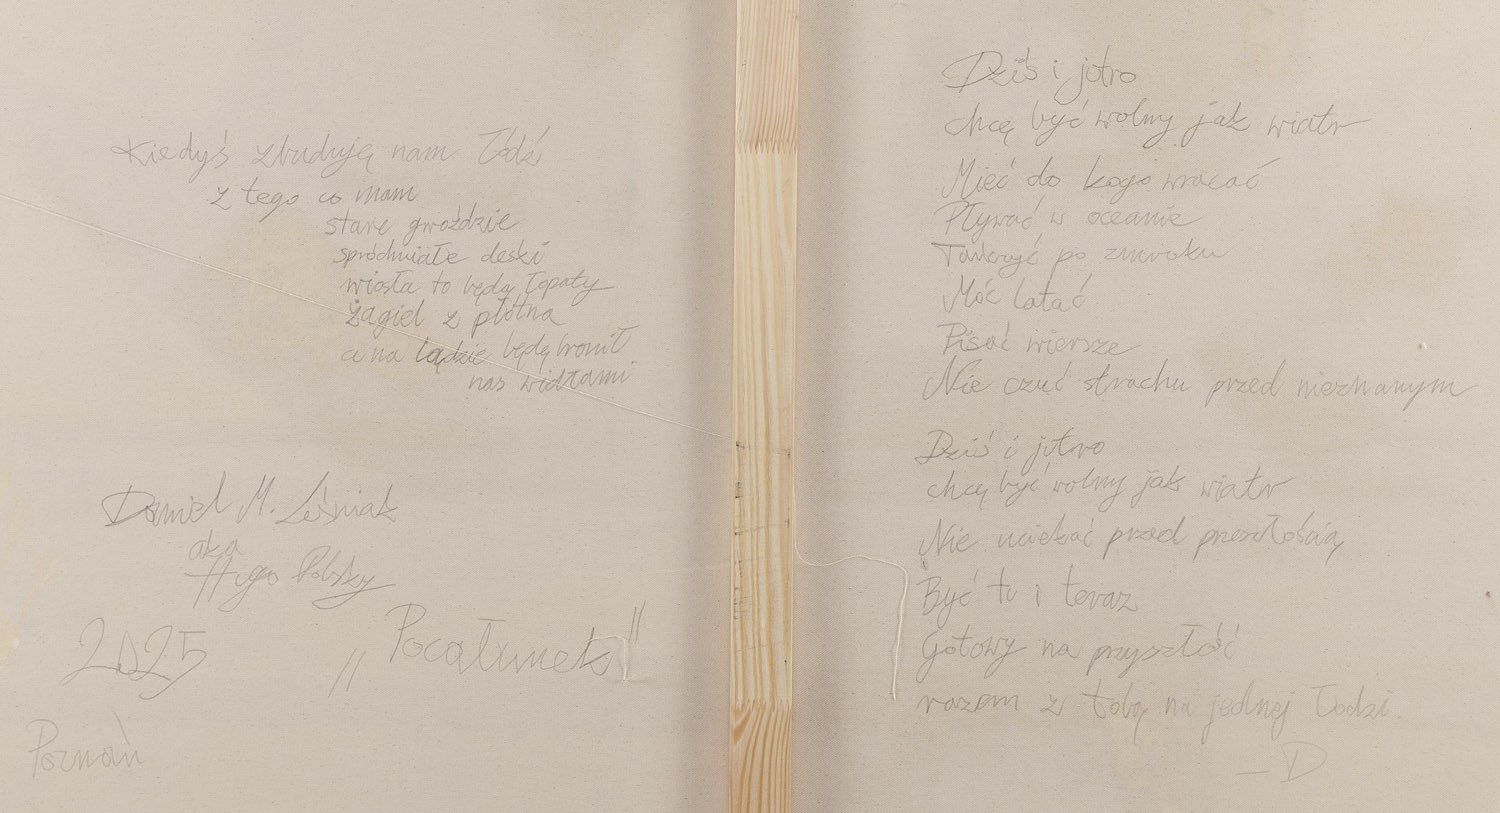 Kiedyś zbuduję nam łódź
z tego co mam
stare gwoździe
spróchniałe deski
wiosła to będą łopaty
żagiel z płótna
a na lądzie będę bronił
nas widłami
Daniel M. Leśniak
aka
Hugo Polsky
2025
„Pocałunek"
Poznań
Dziś i jutro
chcę być wolny jak wiatr
Mieć do kogo wracać
Pływać w oceanie
Tańczyć po zmroku
Móc latać
Pisać wiersze
Nie czuć strachu przed nieznanym
Dziś i jutro
chcę być wolny jak wiatr
Nie uciekać przed przeszłością
Być tu i teraz
Gotowy na przyszłość
razem z tobą na jednej łodzi.
– D